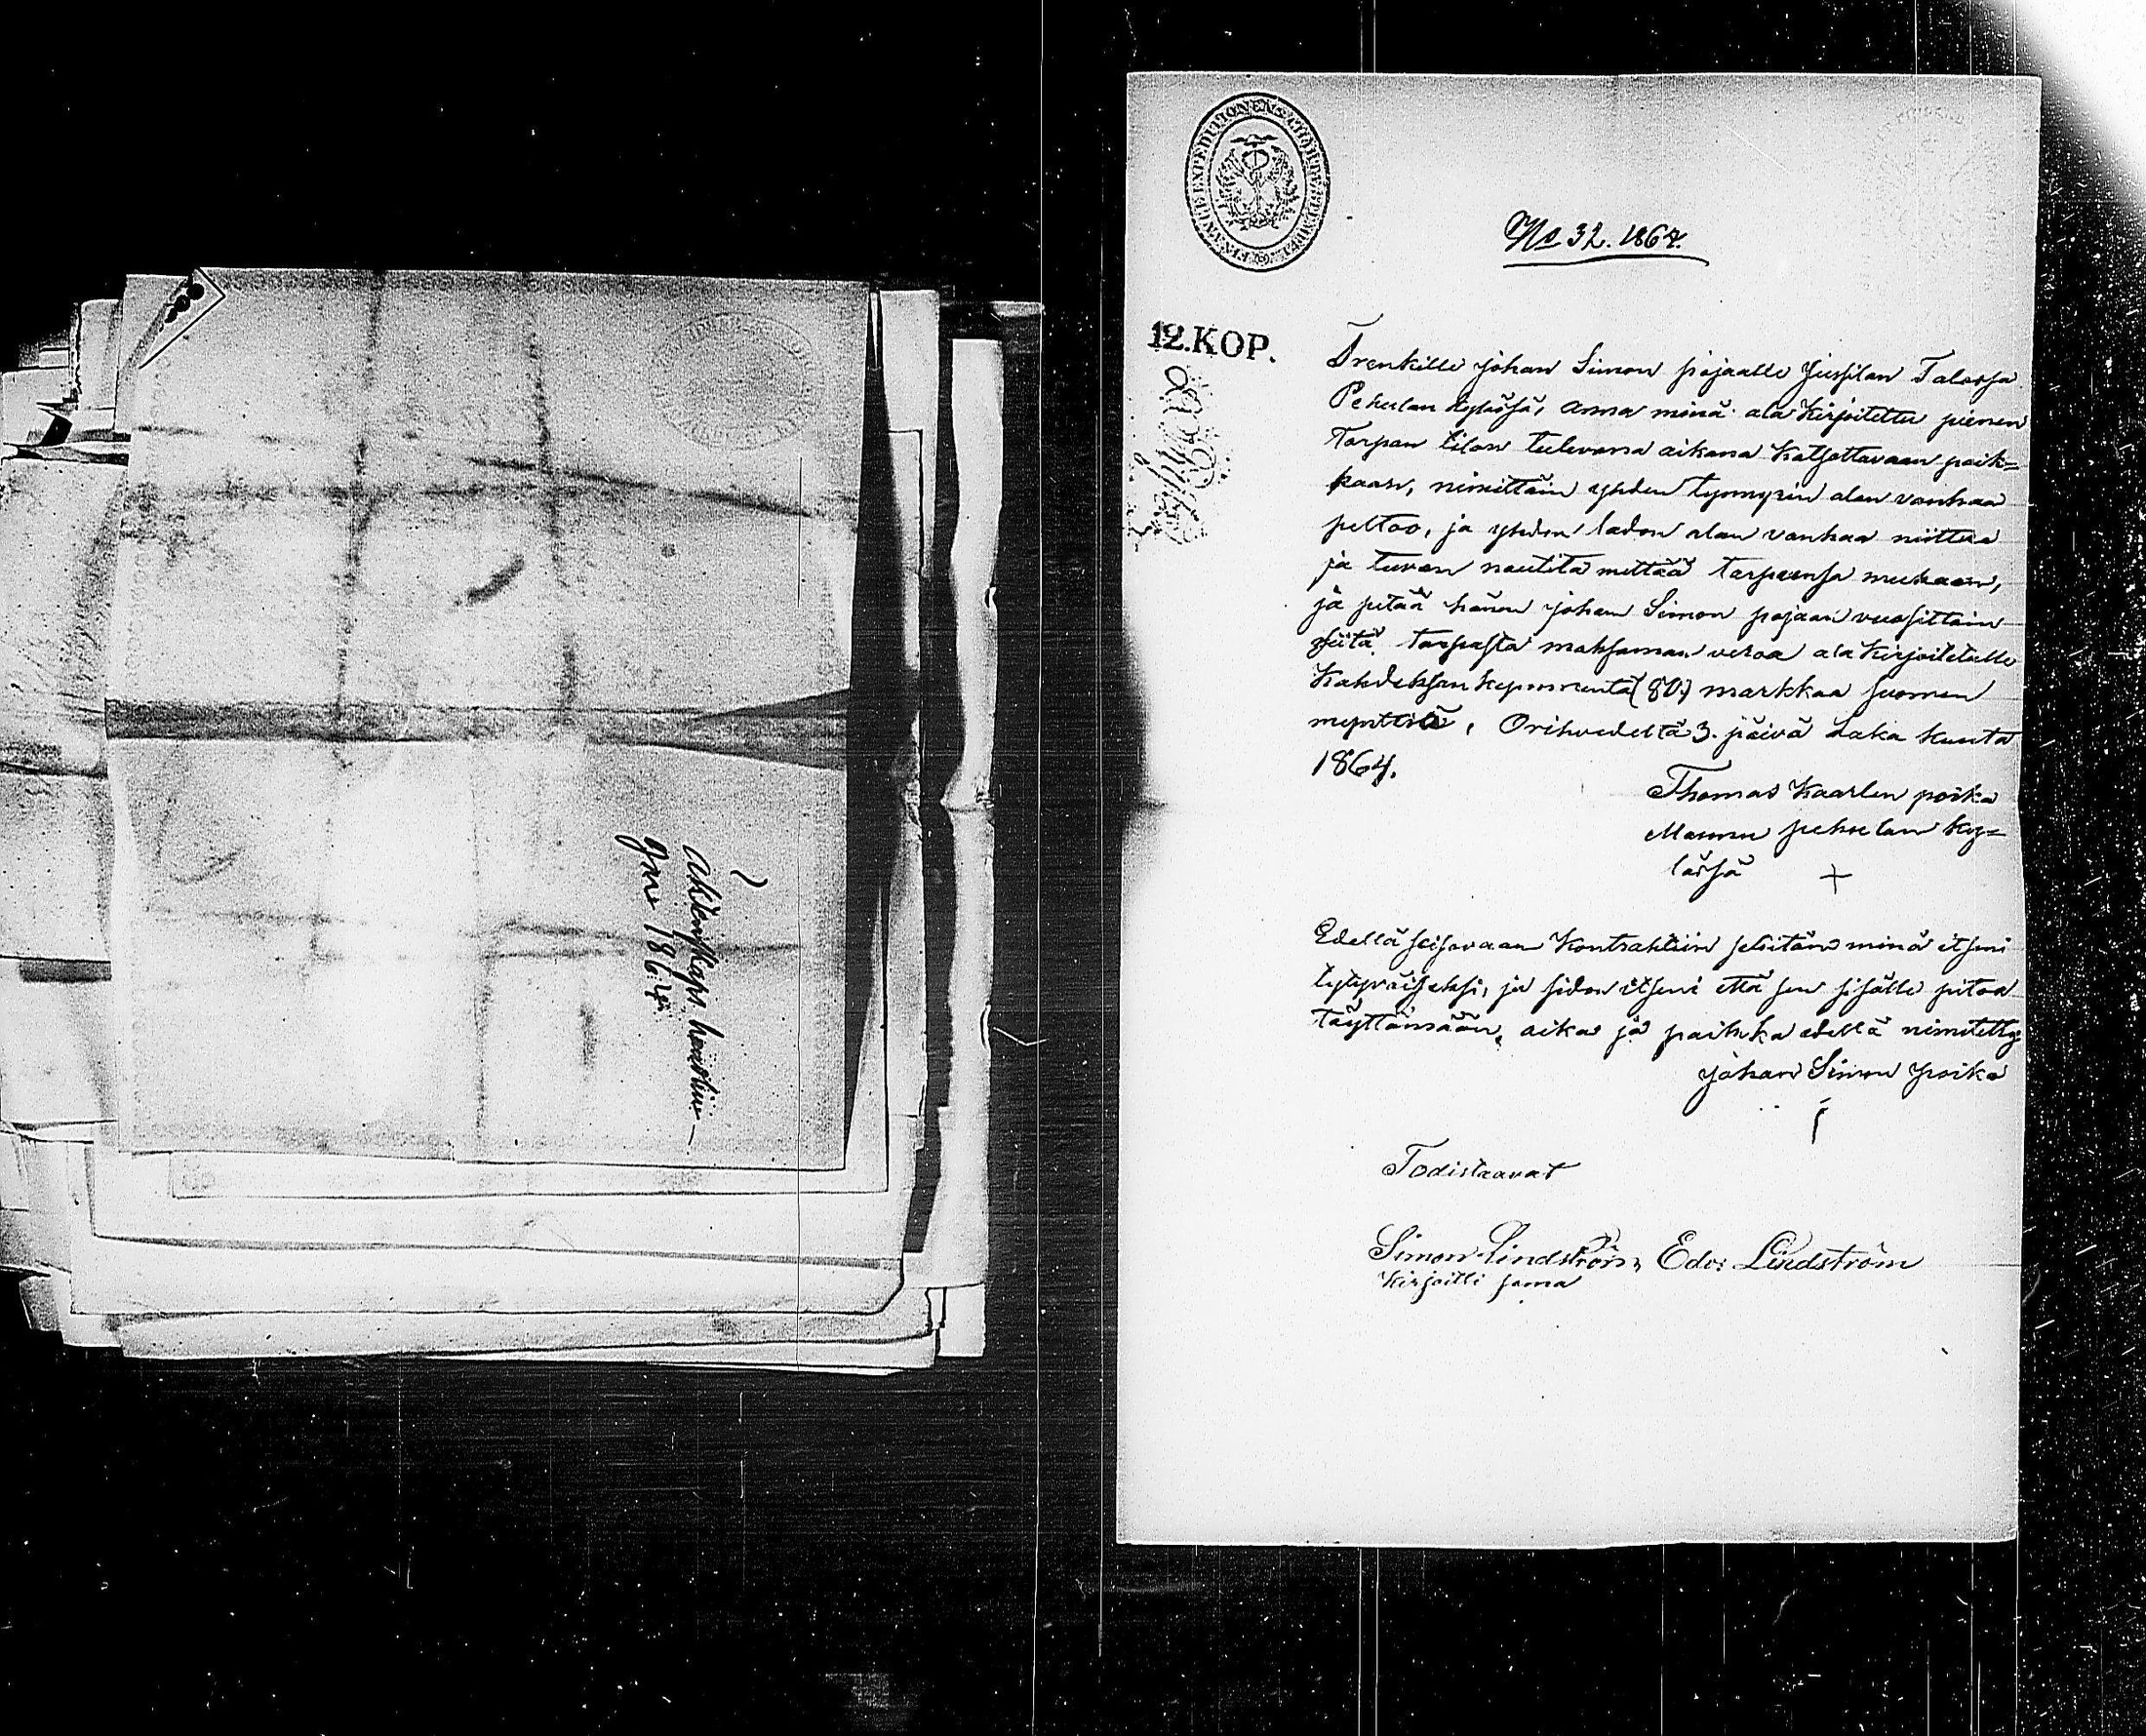 Ahtenskaps, henstiu
gnu 1864.
FINANCE EXPEDITIONENS CHARTÆ STEMPEL
No 32. 1864.
12.KOP.
Trenkille Johan Simon pojaalle Jussilan Talossa
Pehulan kylässä, anna minä ala kirjoitettu pienen
Torpan tilan tulevana aikana katsottavaan paik=
kaan, nimittäin yhden tynnyrin alan vanhaa
peltoo, ja yhden ladon alan vanhaa niittua
ja luvan nautita mettää torpaansa mukaan,
ja pitää hänen Johan Simon pojaan vuosittain
siitä torpasta maksaman veroa ala kirjoitetulle
Kahdeksankymmentä (80.) markkaa suomen
mynttiä, Orihvedeltä 3. päivä Loka kuuta
1864.
Thomas Kaarlen poika
Mannu pehulan ky=
lässä +
Edellä seisovaan Kontrahtiin selvitän minä itseni
tytyväiseksi, ja sidon itseni että sen sisälle pitoa
täyttämään, aika ja paikka edellä nimitetty
Johan Simon poika
Todistaavat
Simon Lindström, Edv: Lindström
kirjoitti sama